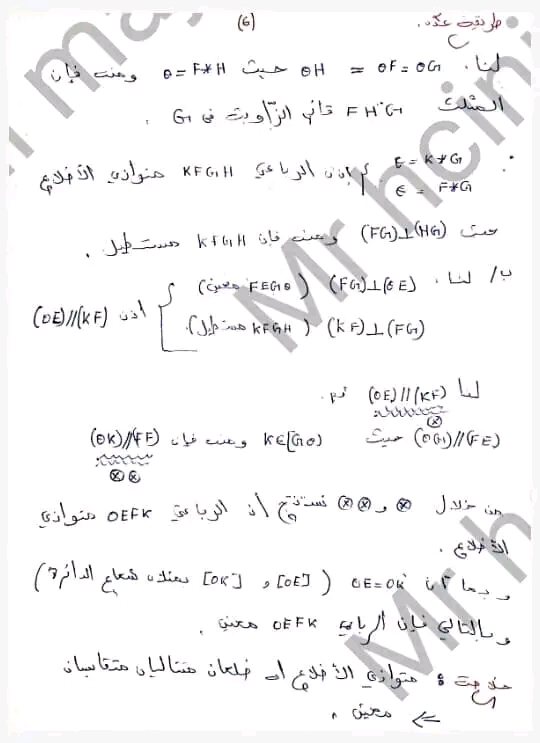 (6) طريقة عدد.
لنا، OH = OF = OG حيث O = F*H ومنه فإن
المثلث FHG قائم الزّاوية في G.
E = K*G
E = F*G } إذن الرباعي KFGH متوازي الأضلاع
حيث (FG)⊥(HG) ومنه فإن KFGH مستطيل.
ب/ لنا، (FG)⊥(OE) (FEGO معين)
(KF)⊥(FG) (KFGH مستطيل) } إذن (OE)//(KF)
لنا (OE)//(KF) ثم
⊗
(OG)//(FE) حيث K∈[GO) ومنه فإن (OK)//(FE)
⊗⊗
من خلال ⊗ و ⊗⊗ نستنتج أن الرباعي OEFK متوازي
الأضلاع.
وبما أن OE=OK ([OE] و [OK] يمثلان شعاع الدائرة)
وبالتالي فإن الرباعي OEFK معين.
متوازي الأضلاع له ضلعان متتاليان متقايسان
⇐ معين.
Mr hcini
Mr hcini
Mr h